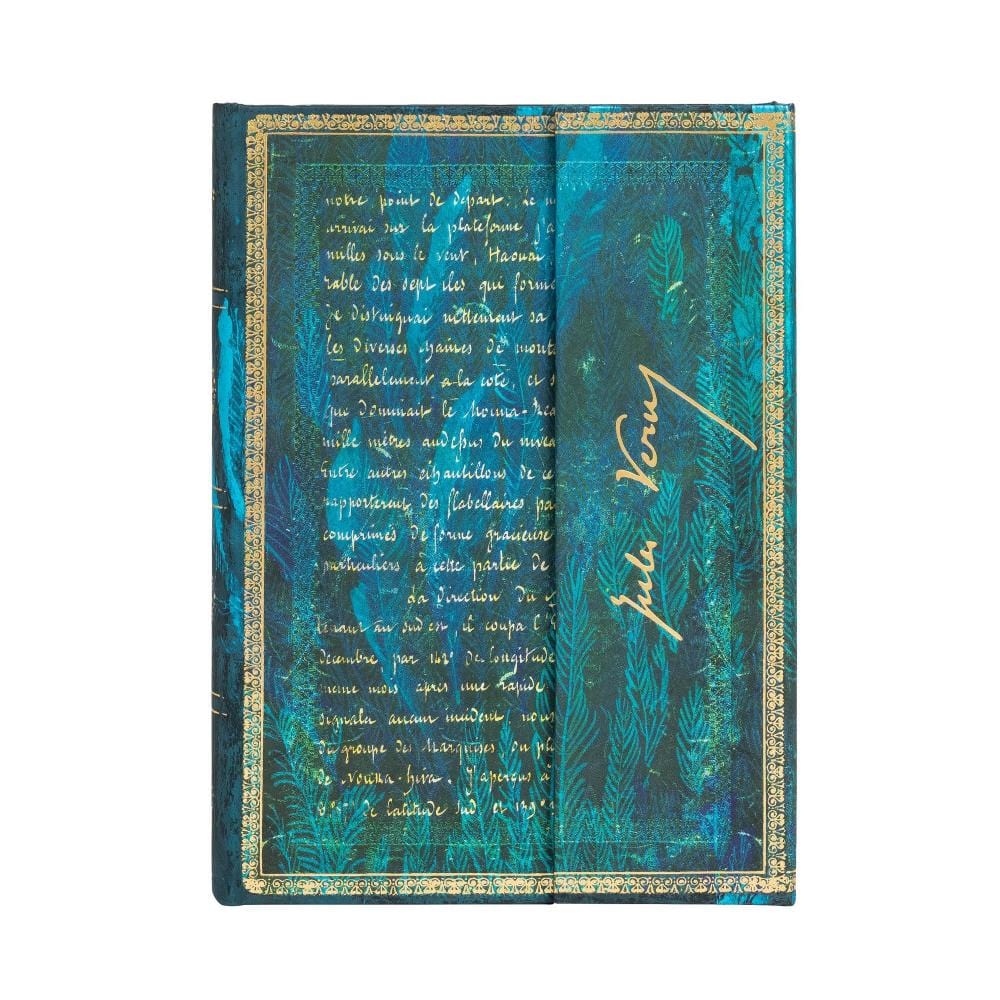 notre point de départ. Le
arrivai sur la plateforme j'a
milles sous le vent, Haouaï
rable des sept iles qui forme
Je distinguai nettement sa
les diverses chaines de monts
parallelement a la cote, et s
que dominait le Mouna-Rea
mille mètres audessus du nivea
Entre autres échantillons de ce
rapporterent des flabellaires pa
comprimés de forme gracieuse
particuliers à cette partie de
La direction du
tenant au sud est, il coupa l'
décembre, par 142° de longitude
meme mois après une rapide
signala aucun incident, nous
du groupe des Marquises. Du pl
de Nouka-hiva. J'aperçus à
de latitude sud et 139°
Jules Verne